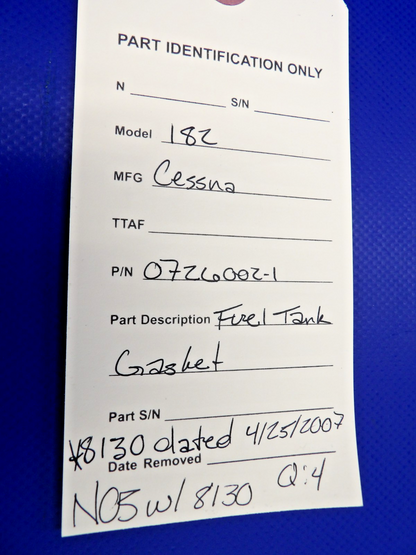 PART IDENTIFICATION ONLY
N S/N
Model 182
MFG Cessna
TTAF
P/N 0726002-1
Part Description Fuel Tank
Gasket
Part S/N
*8130 dated 4/25/2007
Date Removed
NOS w/ 8130 Q:4